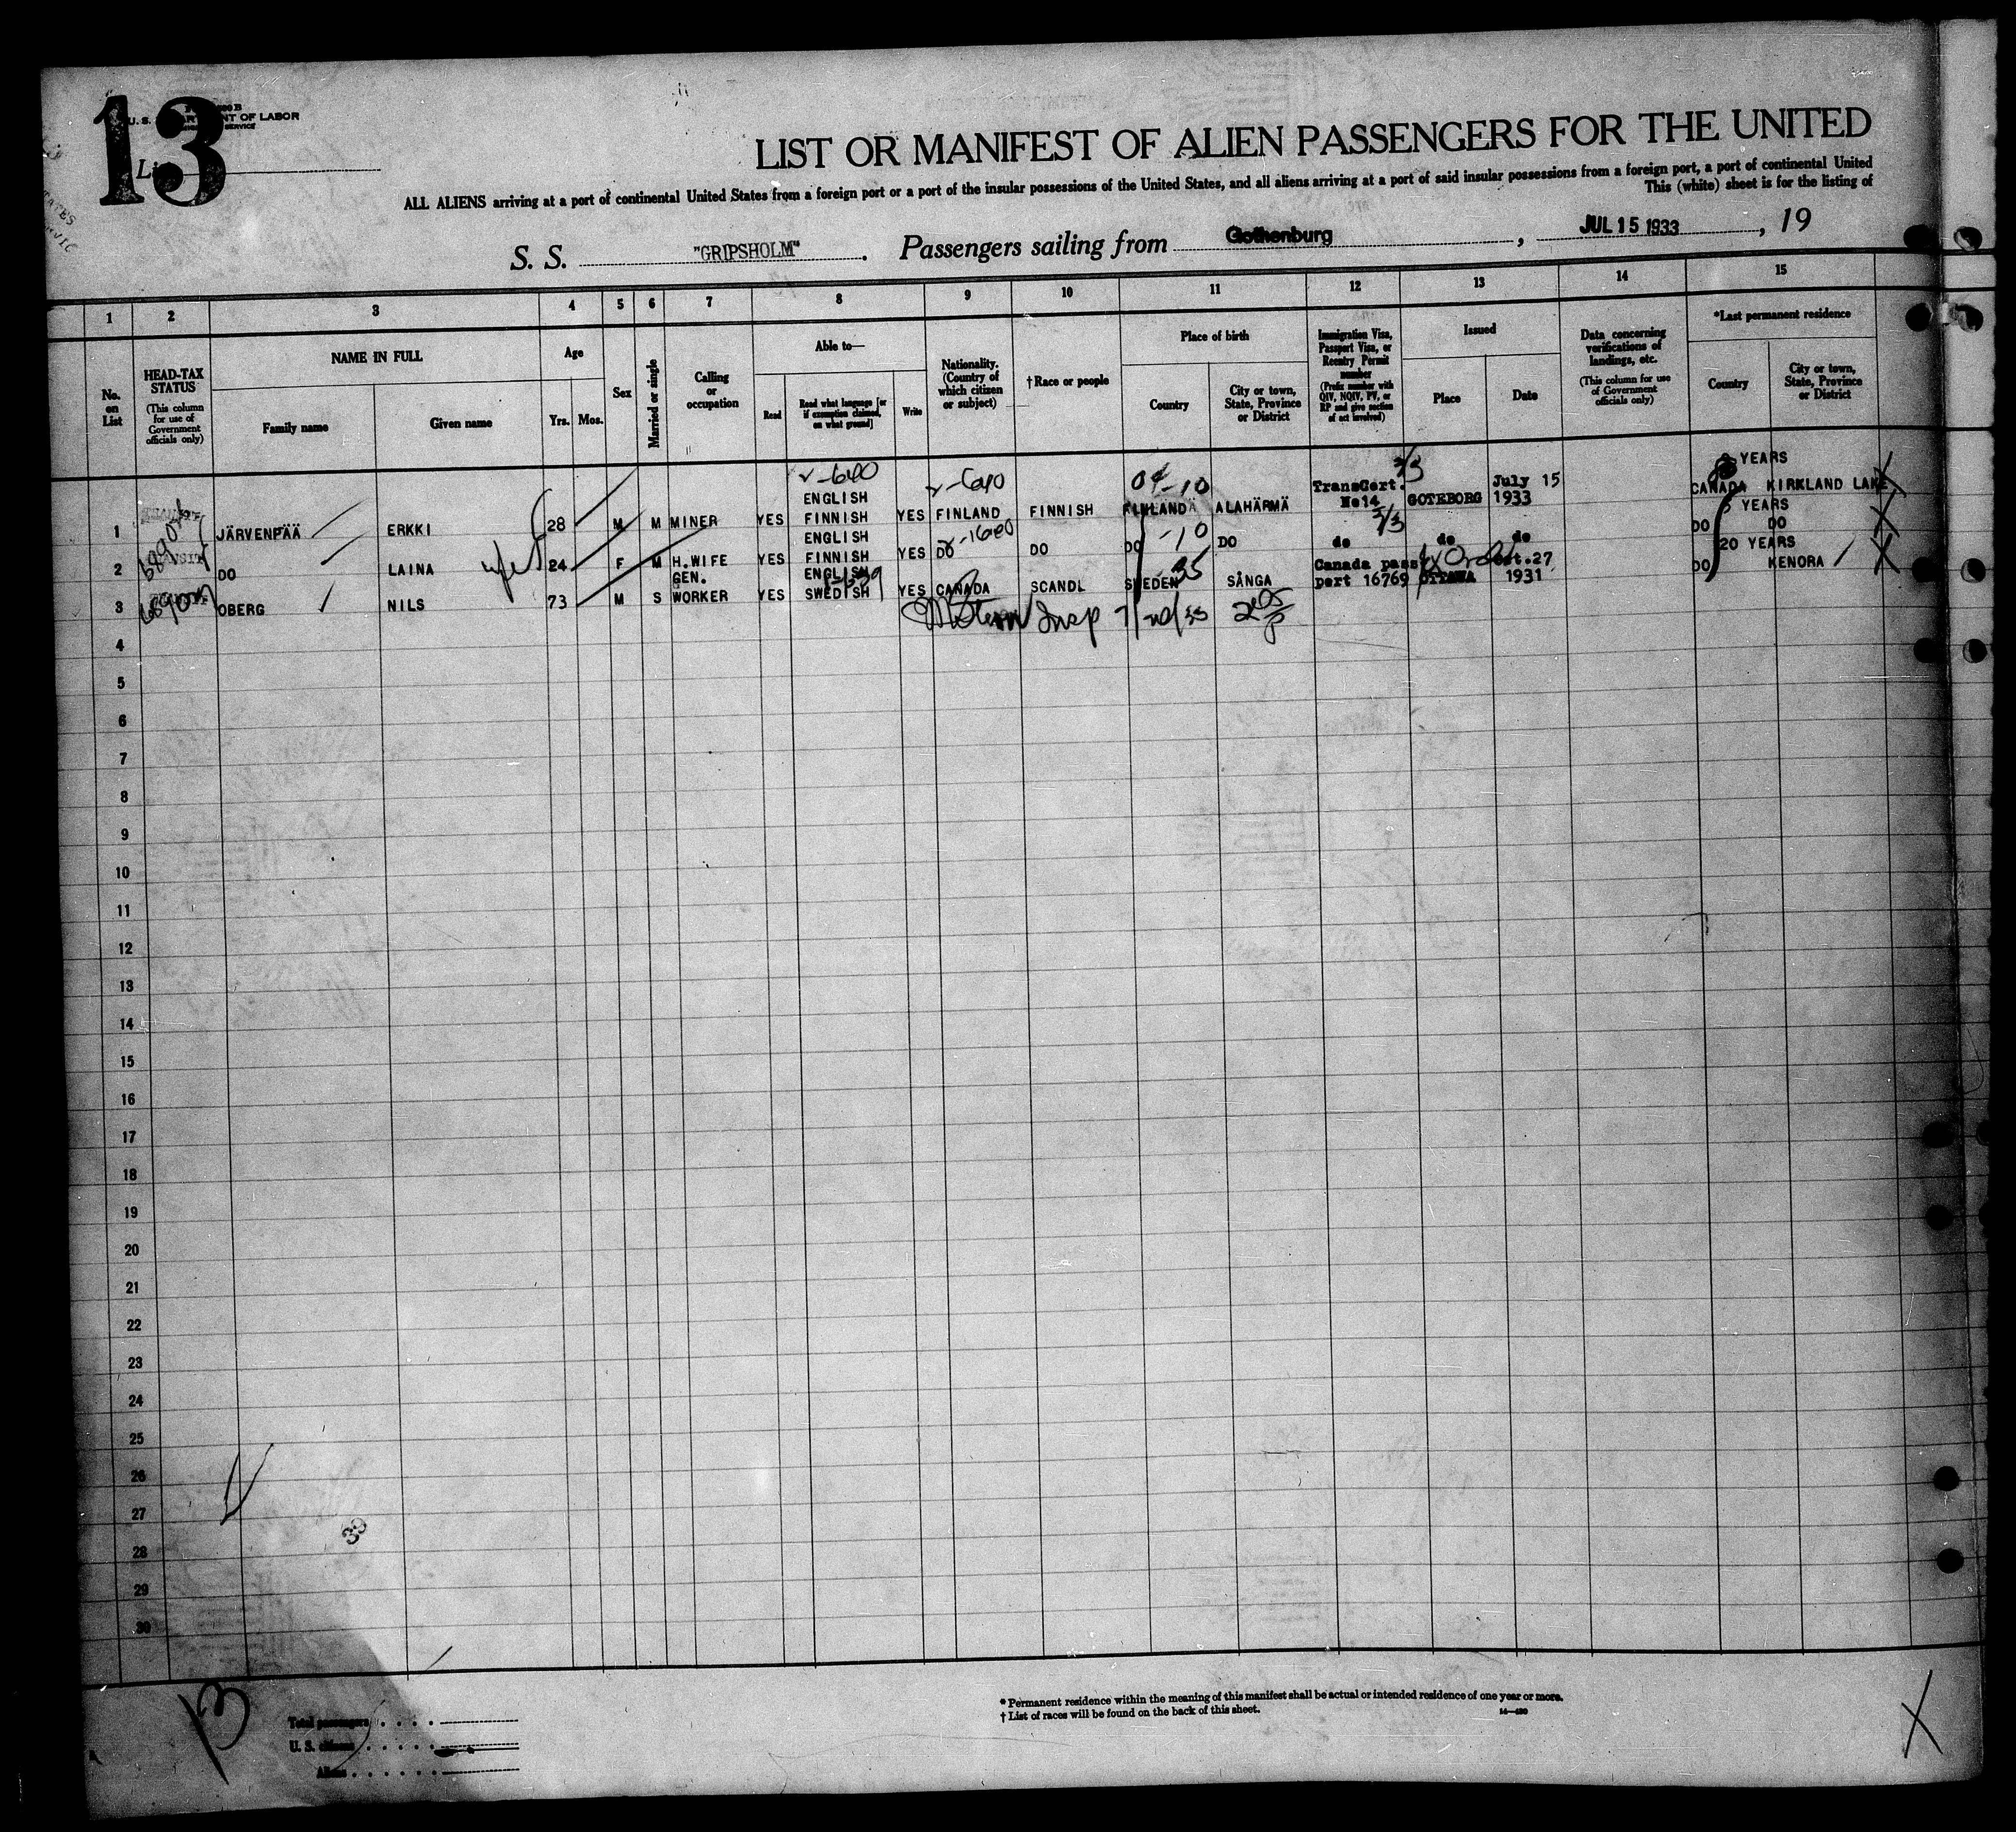 13
U. S. DEPARTMENT OF LABOR
SERVICE
LIST OR MANIFEST OF ALIEN PASSENGERS FOR THE UNITED
ALL ALIENS arriving at a port of continental United States from a foreign port or a port of the insular possessions of the United States, and all aliens arriving at a port of said insular possessions from a foreign port, a port of continental United
This (white) sheet is for the listing of
S. S. "GRIPSHOLM". Passengers sailing from Gothenburg, JUL 15 1933, 19
1 2 3 4 5 6 7 8 9 10 11 12 13 14 15
No. on List
HEAD-TAX STATUS
(This column for use of Government officials only)
NAME IN FULL
Family name
Given name
Age
Yrs. Mos.
Sex
Married or single
Calling or occupation
Able to—
Read
Read what language [or if exemption claimed, on what ground]
Write
Nationality. (Country of which citizen or subject)
†Race or people
Place of birth
Country
City or town, State, Province or District
Immigration Visa, Passport Visa, or Reentry Permit number
(Prefix number with QIV, NQIV, PV, or RP and give section of act involved)
Issued
Place
Date
Data concerning verifications of landings, etc.
(This column for use of Government officials only)
*Last permanent residence
Country
City or town, State, Province or District
1 JÄRVENPÄÄ ERKKI 28 M M MINER YES ENGLISH FINNISH YES FINLAND FINNISH FINLAND ALAHÄRMÄ TransCert. No 14 GOTEBORG July 15 1933 YEARS CANADA KIRKLAND LAKE
2 DO LAINA wife 24 F M H.WIFE YES ENGLISH FINNISH YES DO DO DO DO do do do YEARS DO DO
3 OBERG NILS 73 M S GEN. WORKER YES ENGLISH SWEDISH YES CANADA SCANDL SWEDEN SÅNGA Canada pass port 16769 OTTAWA Oct.27 1931 20 YEARS DO KENORA
Insp
4
5
6
7
8
9
10
11
12
13
14
15
16
17
18
19
20
21
22
23
24
25
26
27
28
29
30
33
13
Total passengers
U. S. citizens
Aliens
* Permanent residence within the meaning of this manifest shall be actual or intended residence of one year or more.
† List of races will be found on the back of this sheet.
14—430
X